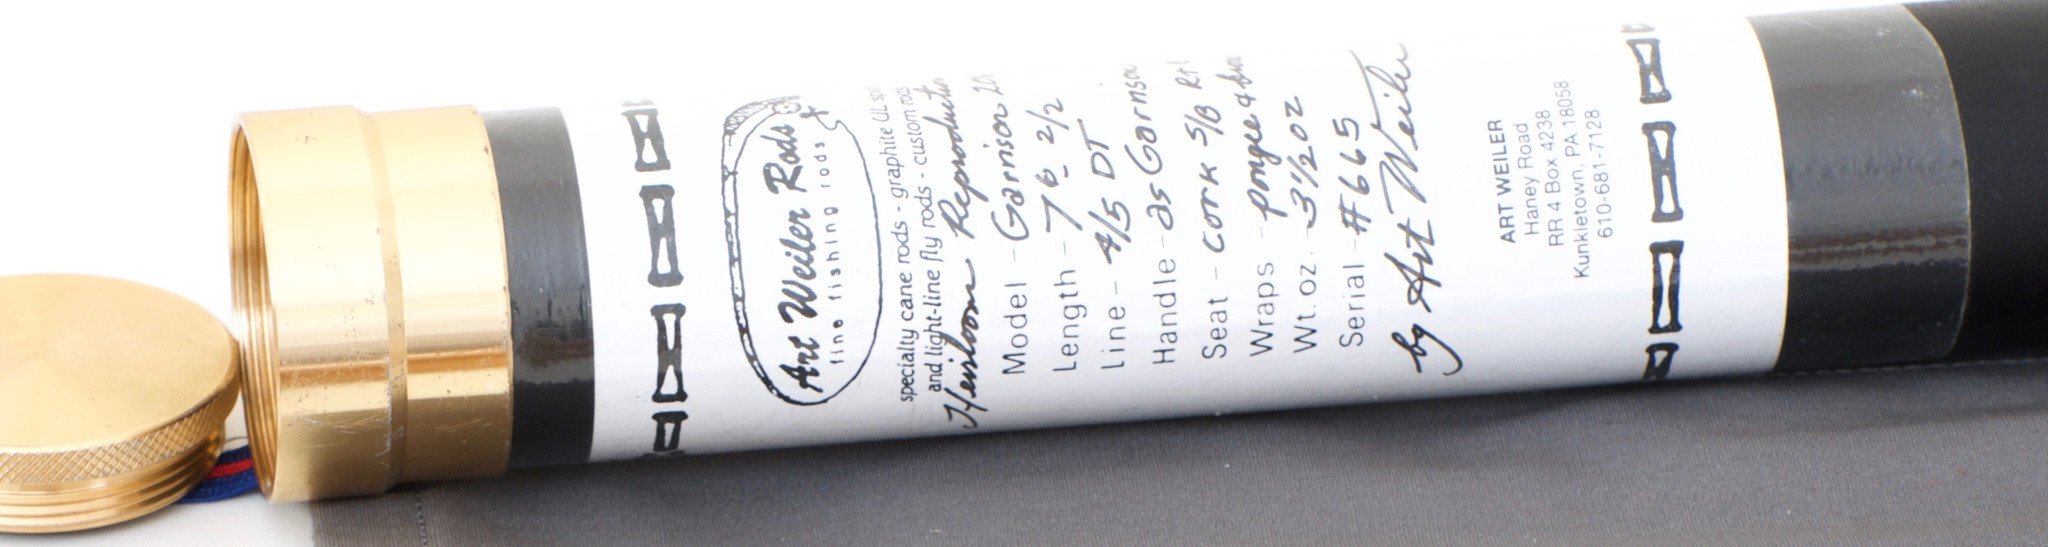 Art Weiler Rods
fine fishing rods
specialty cane rods - graphite UL
and light-line fly rods - custom rods
Heirloom Reproduction
Model - Garrison
Length - 7 6 2/2
Line - 4/5 DT
Handle - as Garrison
Seat - cork S/B
Wraps - pongee &
Wt. oz. 3 1/2 oz
Serial - #665
by Art Weiler
ART WEILER
Haney Road
RR 4 Box 4238
Kunkletown, PA 18058
610-681-7128